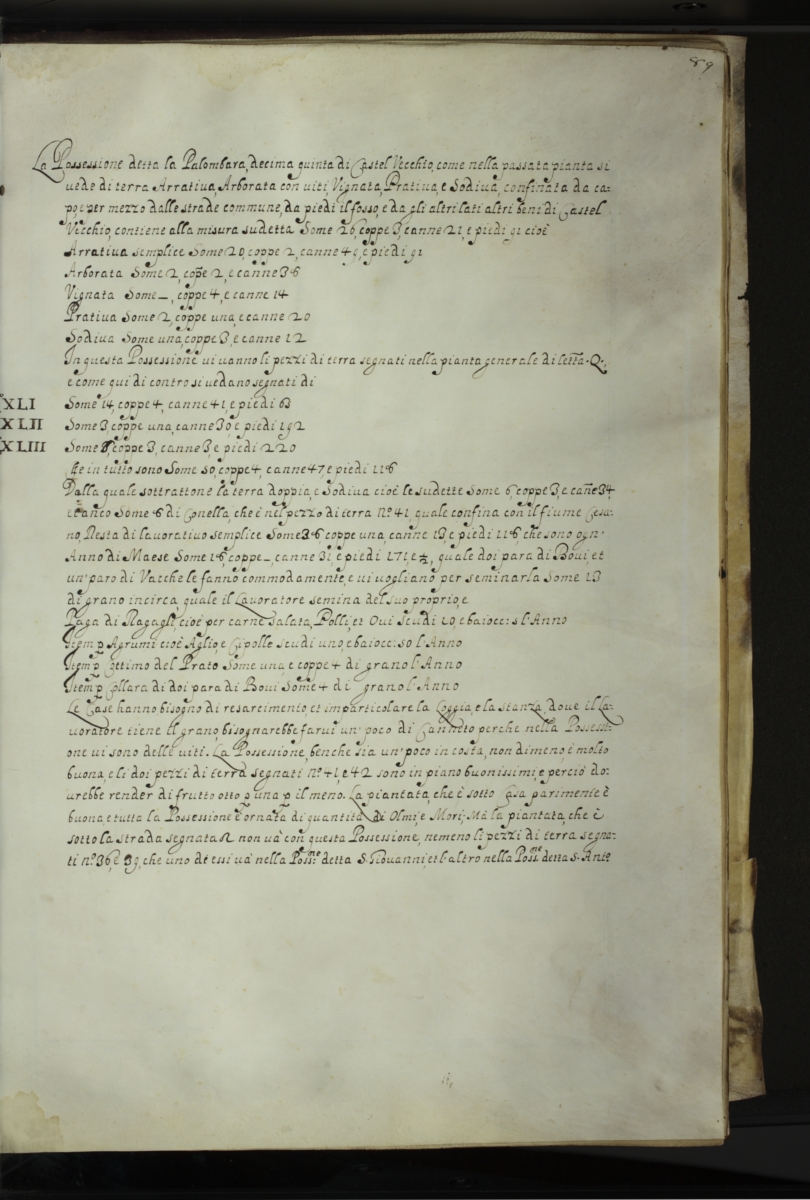 89
La Possessione detta la Palombara, decima quinta di Castel Vecchio, come nella passata pianta si
uede di terra Arratiua, Arborata con uiti, Vignata, Pratiua, e Sodiua, confinata da ca-
po, e per mezzo dalle strade commune, da piedi il fosso, e da gli altri lati altri beni di Castel
Vecchio, contiene alla misura sudetta Some 26, coppe 3, canne 21, e piedi 91 cioè
Arratiua semplice Some 20, coppe 2, canne 49, e piedi 91
Arborata Some 2, coppe 2, e canne 36
Vignata Some _, coppe 4, e canne 14
Pratiua Some 2, coppe una, e canne 20
Sodiua Some una, coppe 3, e canne 12
In questa Possessione ui uanno li pezzi di terra segnati nella pianta generale di lettra .Q.,
e come qui di contro si uedano segnati di
XLI Some 14, coppe 4, canne 41, e piedi 63
XLII Some 3, coppe una, canne 30 e piedi 192
XLIII Some 5, coppe 3, canne 3, e piedi 220
Che in tutto sono Some 50, coppe 4, canne 47 e piedi 116
Dalla quale sottrattone la terra doppia, e Sodiua cioè le sudette Some 6, coppe 3, e canne 34
et anco Some 6 di Conella, che è nel pezzo di terra nº 41 quale confina con il fiume Cesa-
no, Resta di lauoratiuo semplice Some 36 coppe una, canne 13, e piedi 116 che sono ogn'
Anno di Maese Some 16, coppe _ canne 31 e piedi 171, e ½, quale doi para di Boui et
un'paro di Vacche le fanno commodamente, e ui uogliano per seminarla Some 13
di grano incirca, quale il Lauoratore semina del suo proprio, e
Paga di Ragagli cioè per carne salata, Polli, et Oui Scudi 10, e baiocc: 5 l'Anno
Item p Agrumi cioè Aglio, e Cipolle scudi uno, e baiocc: 50 l'Anno
Item p Cottimo del Prato Some una, e coppe 4 di grano l'Anno
Item p Collara di doi para di Boui Some 4 di grano l'Anno
Le Case hanno bisogno di resarcimento, et imparticolare la Loggia, e la stanza, doue il La-
uoratore tiene il grano, bisognarebbe farui un' poco di Canneto perche nella Possessi-
one ui sono delle uiti. La Possessione, benche sia un'poco in costa, non dimeno, è molto
buona, e li doi pezzi di terra segnati nº 41, e 42 sono in piano buonissimi, e perciò do-
urebbe render di frutto otto p una p il meno. La piantata, che è sotto Casa parimente è
buona, e tutta la Possessione è ornata di quantità di Olmi, e Mori; Mà la piantata, che è
sotto la strada segnata R non uà con questa Possessione, nemeno li pezzi di terra segna-
ti nº 36, è 39, che uno de essi uà nella Possne detta S. Giouanni, et l'altro nella Possne detta S. Anto